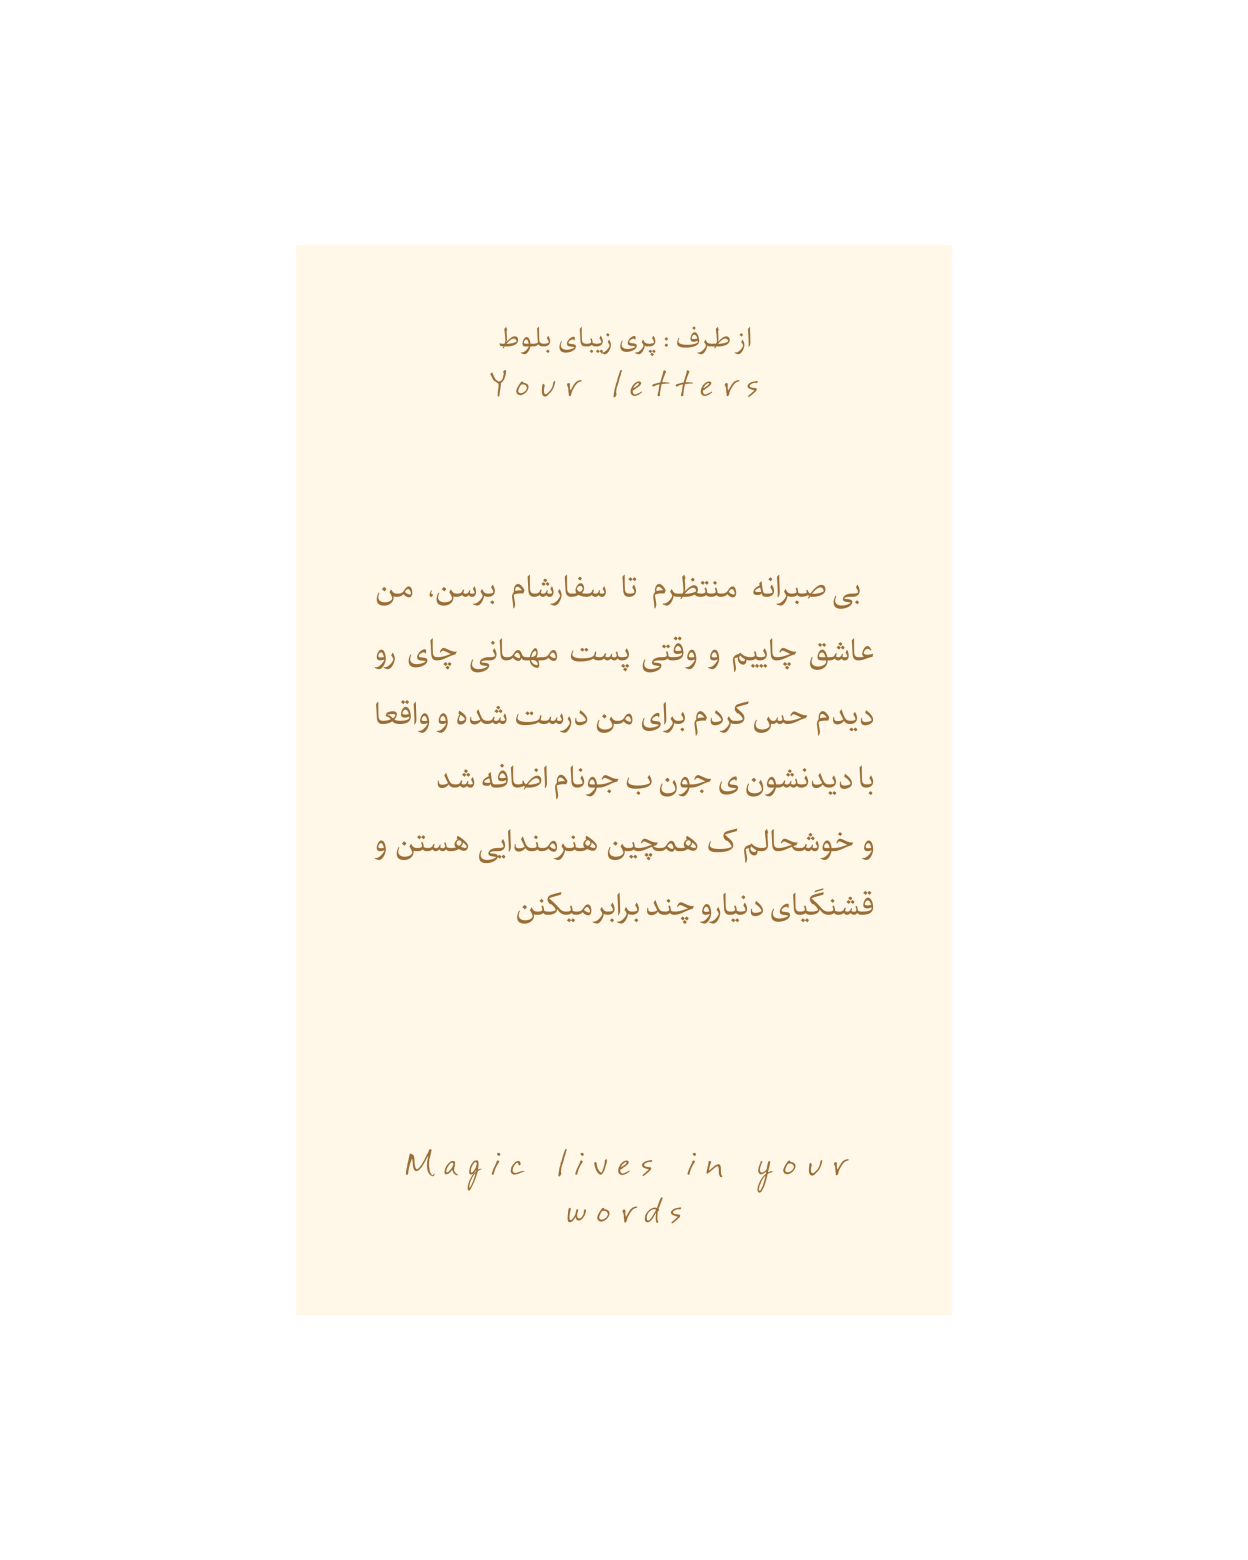 از طرف : پری زیبای بلوط
Your letters
بی صبرانه منتظرم تا سفارشام برسن، من
عاشق چاییم و وقتی پست مهمانی چای رو
دیدم حس کردم برای من درست شده و واقعا
با دیدنشون ی جون ب جونام اضافه شد
و خوشحالم ک همچین هنرمندایی هستن و
قشنگیای دنیارو چند برابر میکنن
Magic lives in your
words